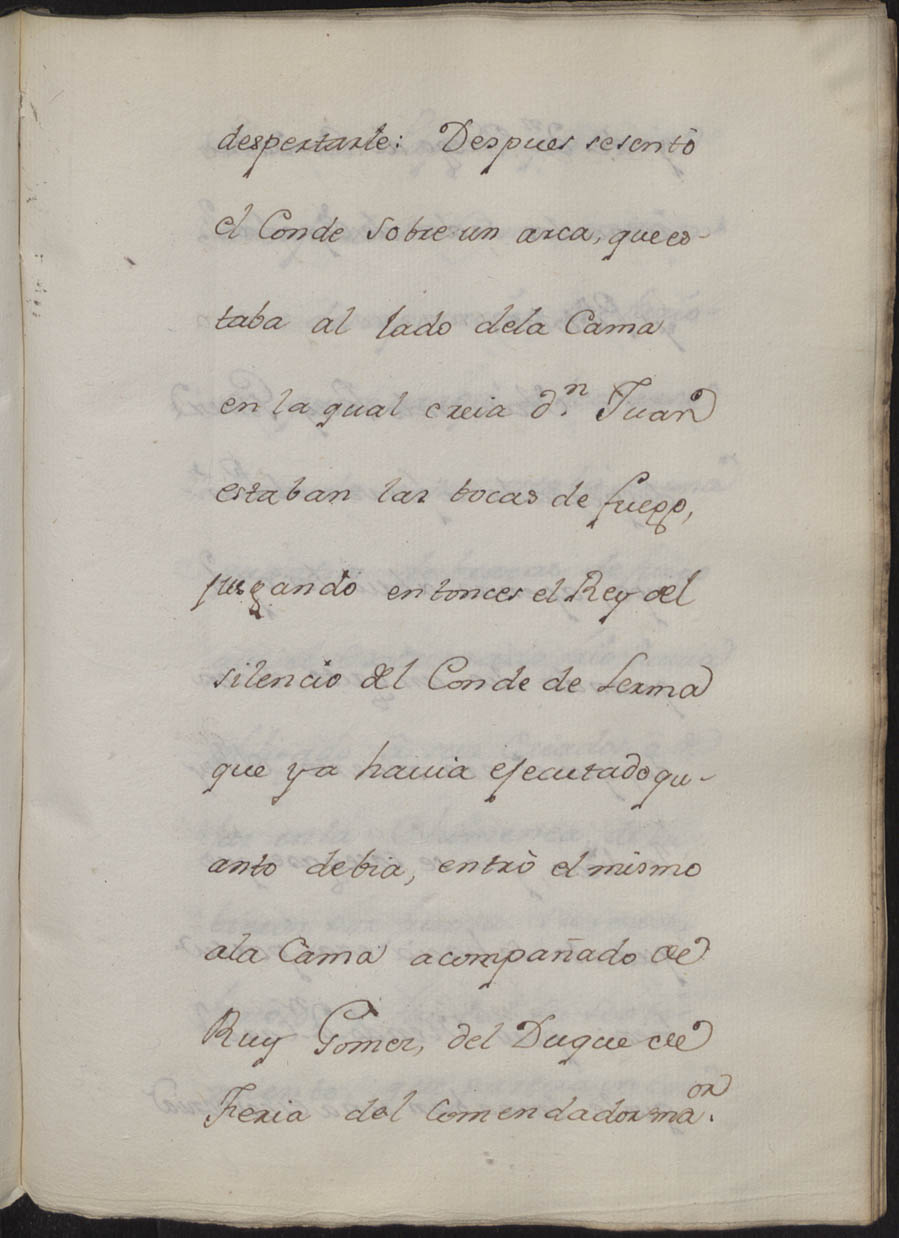 despertarle: Despues sesentò
el Conde sobre un arca, que es-
taba al lado dela Cama
en la qual creia d.ⁿ Juan
estaban las bocas de fuego,
juzgando entonces el Rey del
silencio del Conde de Lerma
que ya hauia ejecutado qu-
anto debia, entrò el mismo
ala Cama acompañado de
Ruy Gomez, del Duque de
Feria del Comendador ma.ᵒʳ